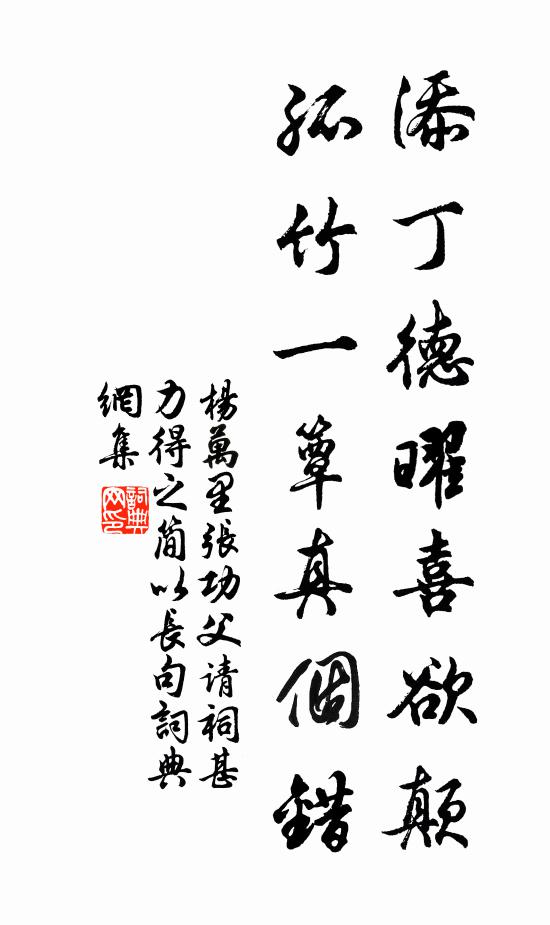 添丁德曜喜欲顛
孤竹一簞真個錯
楊萬里張功父請祠甚
力得之簡以長句詞典
網集
詞典
网印